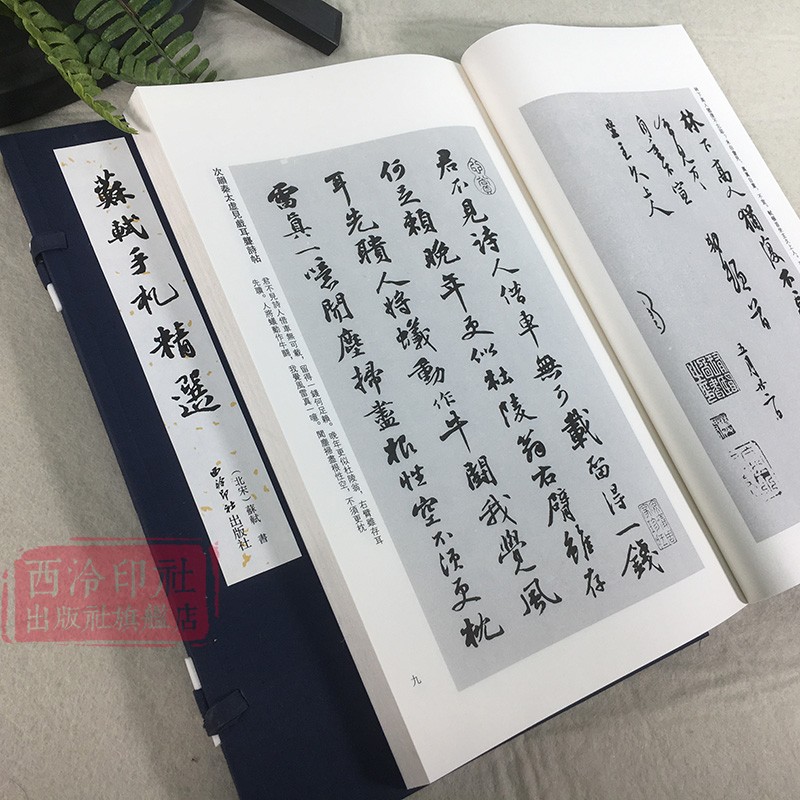 蘇軾手札精選
(北宋)蘇軾 書
西泠印社出版社
西泠印社
出版社旗艦店
林下高人猶復不
堂主久上人
君不見詩人借車無可載留得一錢
何足賴晚年更似杜陵翁右臂雖存
耳先聵人將蟻動作牛鬭我覺風
雷真一噫聞塵掃盡根性空不須更枕
次韻秦太虚見戲耳聾詩帖
君不見詩人借車無可載,留得一錢何足賴。晚年更似杜陵翁,右臂雖存耳
先聵。人將蟻動作牛鬭,我覺風雷真一噫。聞塵掃盡根性空,不須更枕
九